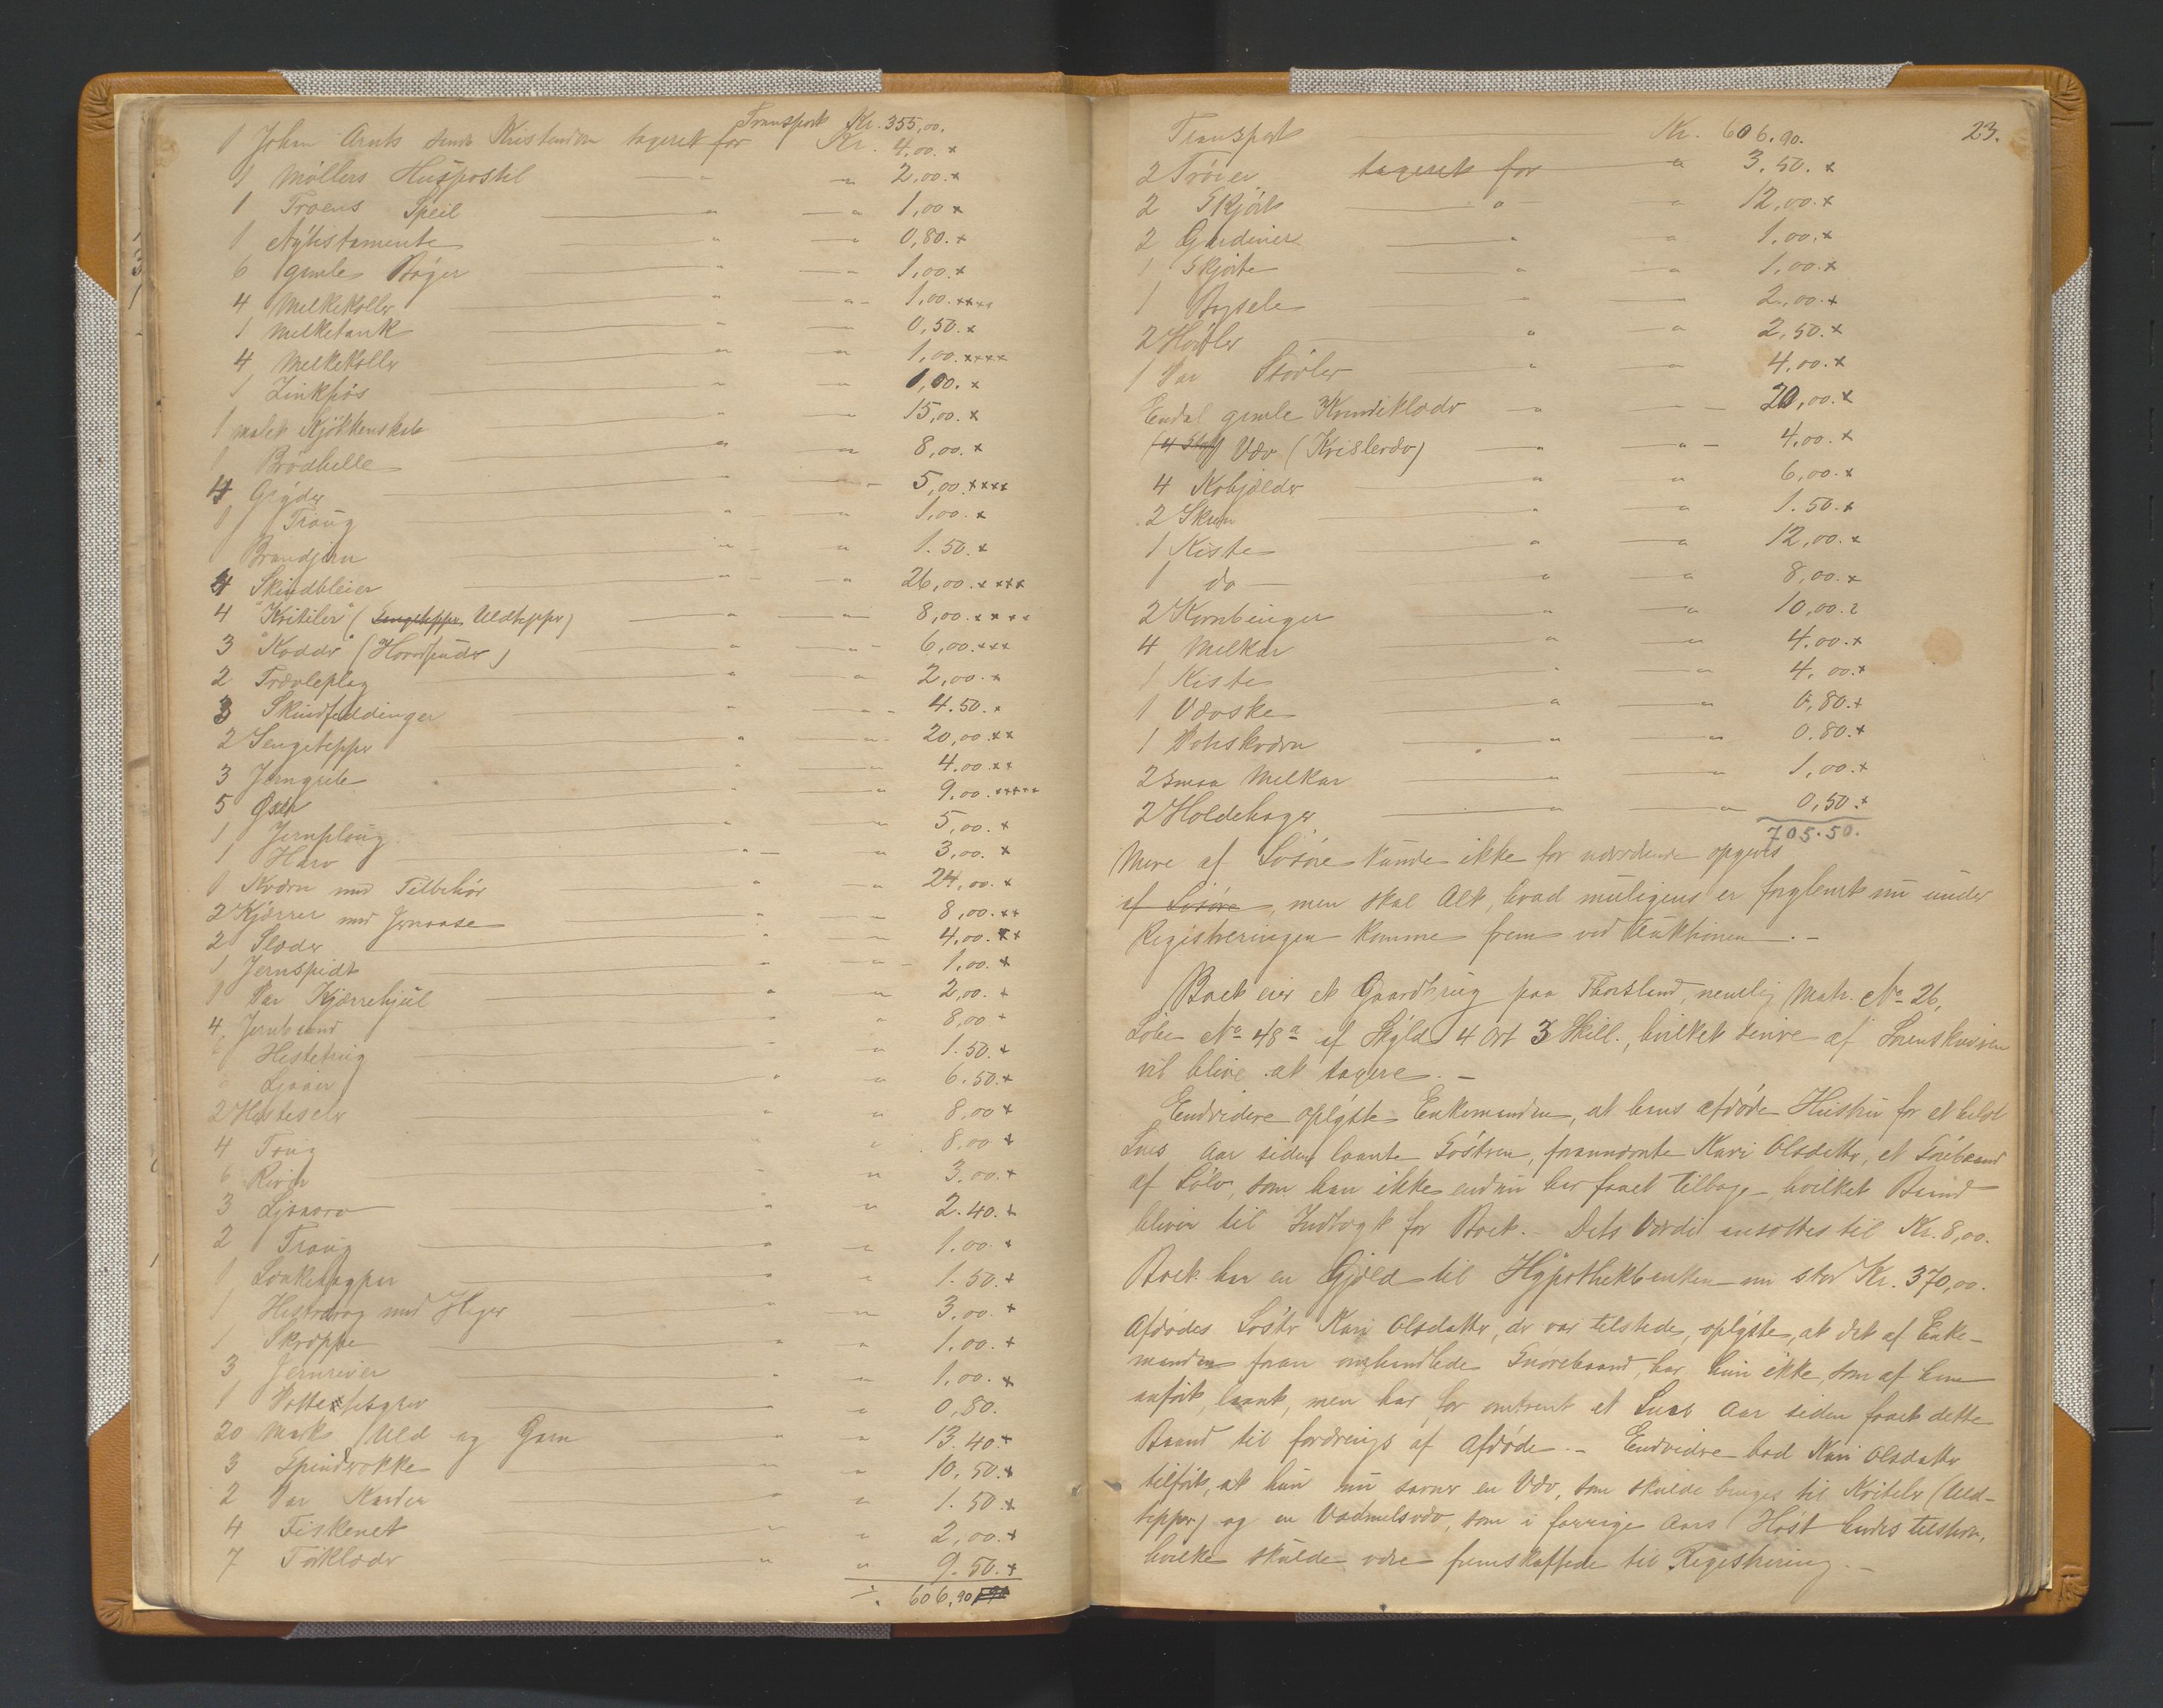 Transport Kr. 355,00.
1 Johan Arnts sande Kristendom taxeret for Kr. 4,00. x
1 Møllers Huspostil " " 2,00. x
1 Troens Speil " " 1,00 x
1 Nytistamente " " 0,80. x
6 gamle Bøger " " 1,00. x
4 Melkekoller " " 1,00. xxxx
1 Melketank " " 0,50. x
4 Melkekoller " " 1,00. xxxx
1 Zinkpøs " " 1,00. x
1 malet Kjøkkenskab " " 15,00. x
1 Brødhelle " " 8,00. x
4 Gryder " " 5,00 xxxx
1 Traug " " 1,00. x
1 Brandjern " " 1.50. x
4 Skindbleier " " 26,00. xxxx
4 "Kritiler" (Sengetepper Uldtepper) " " 8,00. xxxx
3 "Kodder" (Hovedpuder) " " 6,00. xxx
2 " " 2,00. x
3 Skindfeldinger " " 4.50. x
2 Sengetepper " " 20,00. xx
3 Jerngreb " " 4.00. xx
5 " " 9.00. xxxxx
1 Jernploug " " 5,00. x
1 Harv " " 3,00. x
1 Kværn med Tilbehør " " 24,00. x
2 Kjærrer med " " 8,00. xx
2 Slæder " " 4,00. xx
1 Jernspidt " " 1,00. x
1 Par Kjærrehjul " " 2,00. x
4 Jernbaand " " 8,00 x
" " 1.50. x
Ljaaer " " 6.50. x
2 Hesteseler " " 8,00 x
4 Toug " " 8.00 x
6 River " " 3.00. x
3 Ljaaorv " " 2.40. x
2 Traug " " 1.00. x
1 " " 1.50. x
1 med " " 3.00. x
1 Skrøppe " " 1.00. x
3 Jernriver " " 1,00. x
1 " " 0,80.
20 Mark Uld og Garn " " 13.40. x
3 Spinderokke " " 10.50. x
2 Par Karder " " 1.50 x
4 Fiskenet " " 2,00. x
7 Tørklæder " " 9.50. x
/. 606,90
23.
Transport Kr. 606.90.
2 Trøier taxeret for " 3.50. x
2 Skjørt " " 12,00. x
2 Gardiner " " 1,00. x
1 Skjorte " " 1,00. x
1 " " 2,00. x
2 Høvler " " 2,50. x
1 Par Støvler " " 4,00. x
Endel gamle Kvindeklæder " 20,00. x
Væv " " 4,00. x
4 Kobjelder " " 6,00. x
2 " " 1.50. x
1 Kiste " " 12,00. x
1 do " " 8,00. x
2 Kornbinger " " 10,00.
4 Melkar " " 4.00. x
1 Kiste " " 4,00. x
1 Væske " " 0,80. x
1 " " 0.80. x
2 smaa Melkar " " 1,00. x
2 Holdehager " " 0,50. x
705.50.
Mere af Løsøre kunde ikke for nærværende opgives
af Løsøre, men skal Alt, hvad muligens er forglemt nu under
Registreringen komme frem ved Auktionen. -
Boet eier et Gaardbrug paa Thorsland, nemlig Matr. No 26,
Løbe No 48a af Skyld 4 Ort 3 Skill., hvilket senere af Sorenskriveren
vil blive at taxere. -
Endvidere oplyste Enkemanden, at hans afdøde Hustru for et helst
Snes Aar siden laante Søstren, forannævnte Kari Olsdatter, et Snørebaand
af Sølv, som han ikke endnu har faaet tilbage - hvilket Baand
bliver til Indtægt for Boet. - Dets Værdi ansættes til Kr. 8,00.
Boet har en Gjæld til Hypothekbanken nu stor Kr. 370,00.
Afdødes Søster Kari Olsdatter, der var tilstede, oplyste, at det af Enke-
manden foran omhandlede Snørebaand, har hun ikke, som af ham
anført, laant, men har for omtrent et Snes Aar siden faaet dette
Baand til af Afdøde. - Endvidere bad Kari Olsdatter
tilført, at hun nu savner en Væv, som skulde bruges til Kritiler (Uld-
tepper) og en Vadmelsvæv, som i forrige Aars Høst tilstede,
hvilke skulde være fremskaffede til Registrering. -